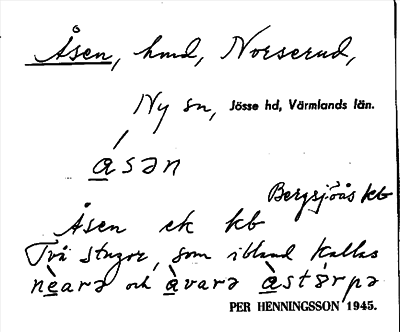 Åsen, hmd, Norserud,
Ny sn, Jösse hd, Värmlands län.
åsən
Bergsjöås kb
Åsen ek kb
Två stugor, som ibland kallas
nèarə och àvarə àstórpə
PER HENNINGSSON 1945.